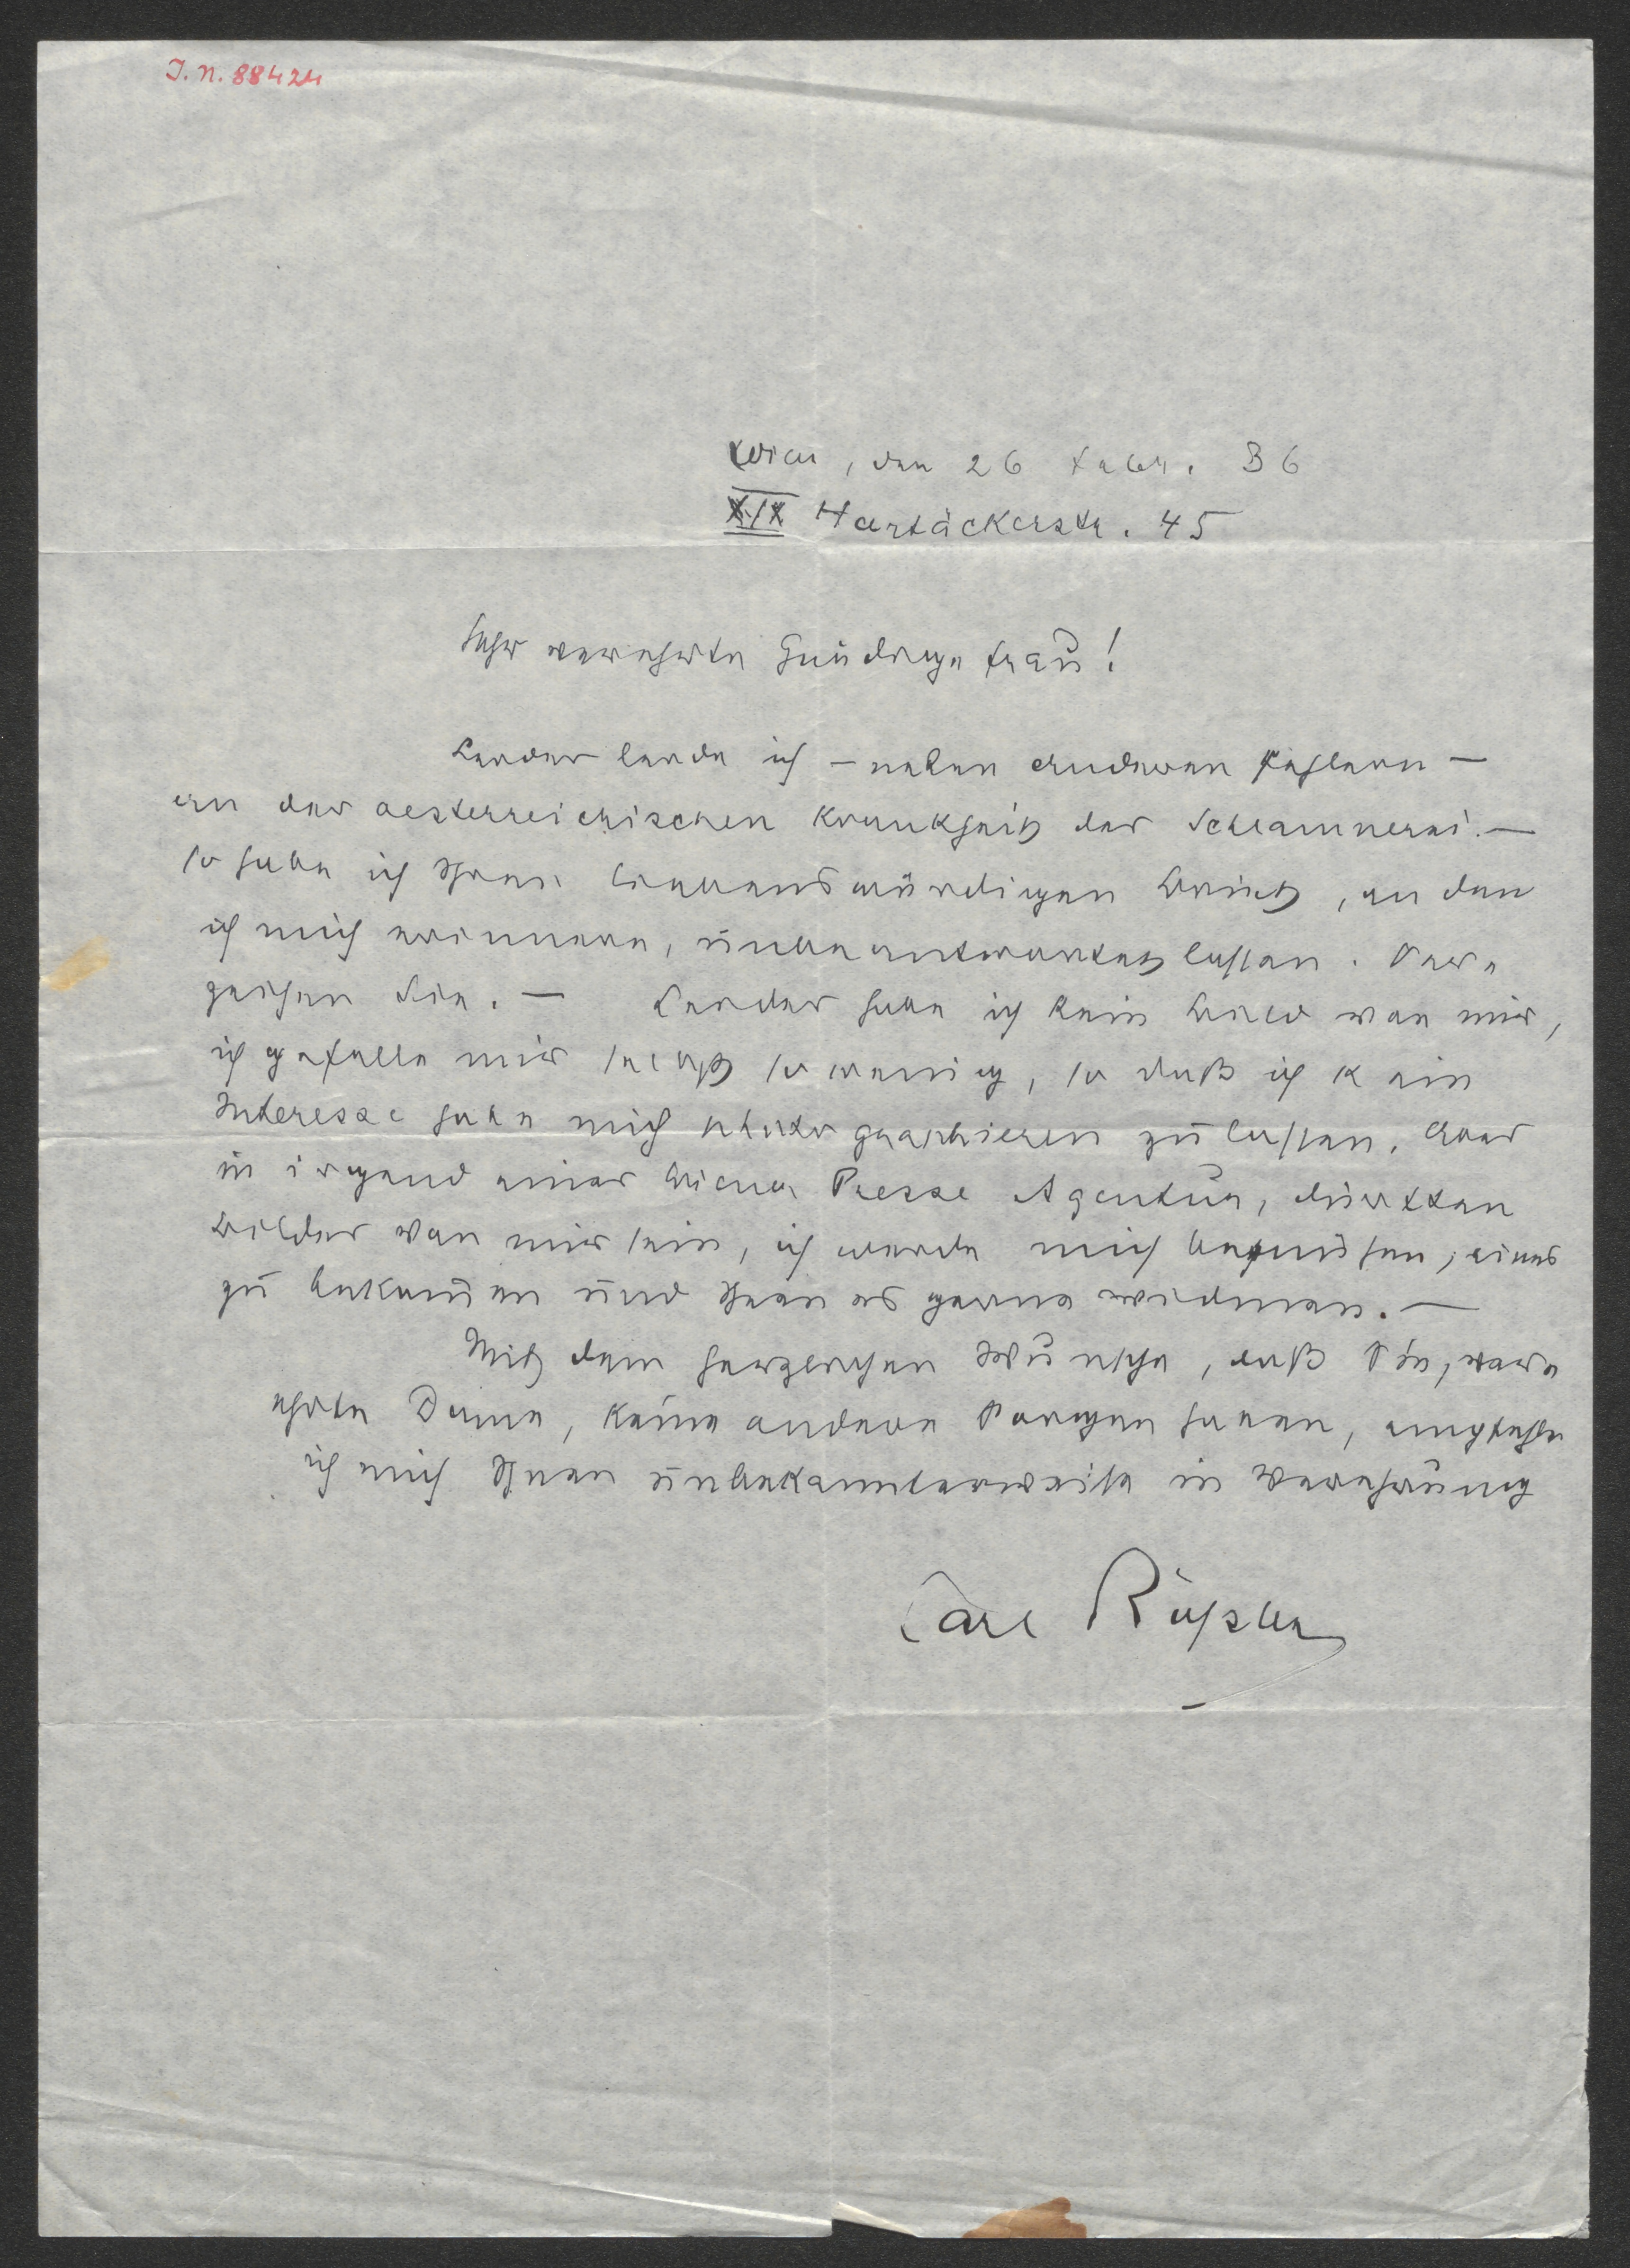 I. N. 88424
Wien, den 26 Febr. 36
XIX Hartäckerstr. 45
Sehr verehrte Gnädige Frau!
Leider leide ich – neben anderen Fehlern –
an der oesterreichischen Krankheit der Schlamperei. –
So habe ich Ihren liebenswürdigen Brief, an den
ich mich erinnere, unbeantwortet lassen. Ver-
zeihen Sie. – Leider habe ich kein Bild von mir,
ich gefalle mir selbst so wenig, so daß ich kein
Interesse habe mich photographieren zu lassen. Aber
in irgend einer Wiener Presse Agentur, dürften
Bilder von mir sein, ich werde mich bemühen, eines
zu bekommen und Ihnen es gerne widmen. –
Mit dem herzlichen Wunsche, daß Sie, ver-
ehrte Dame, keine andere Sorgen haben, empfehle
ich mich Ihnen unbekannterweise in Verehrung
Carl Rössler